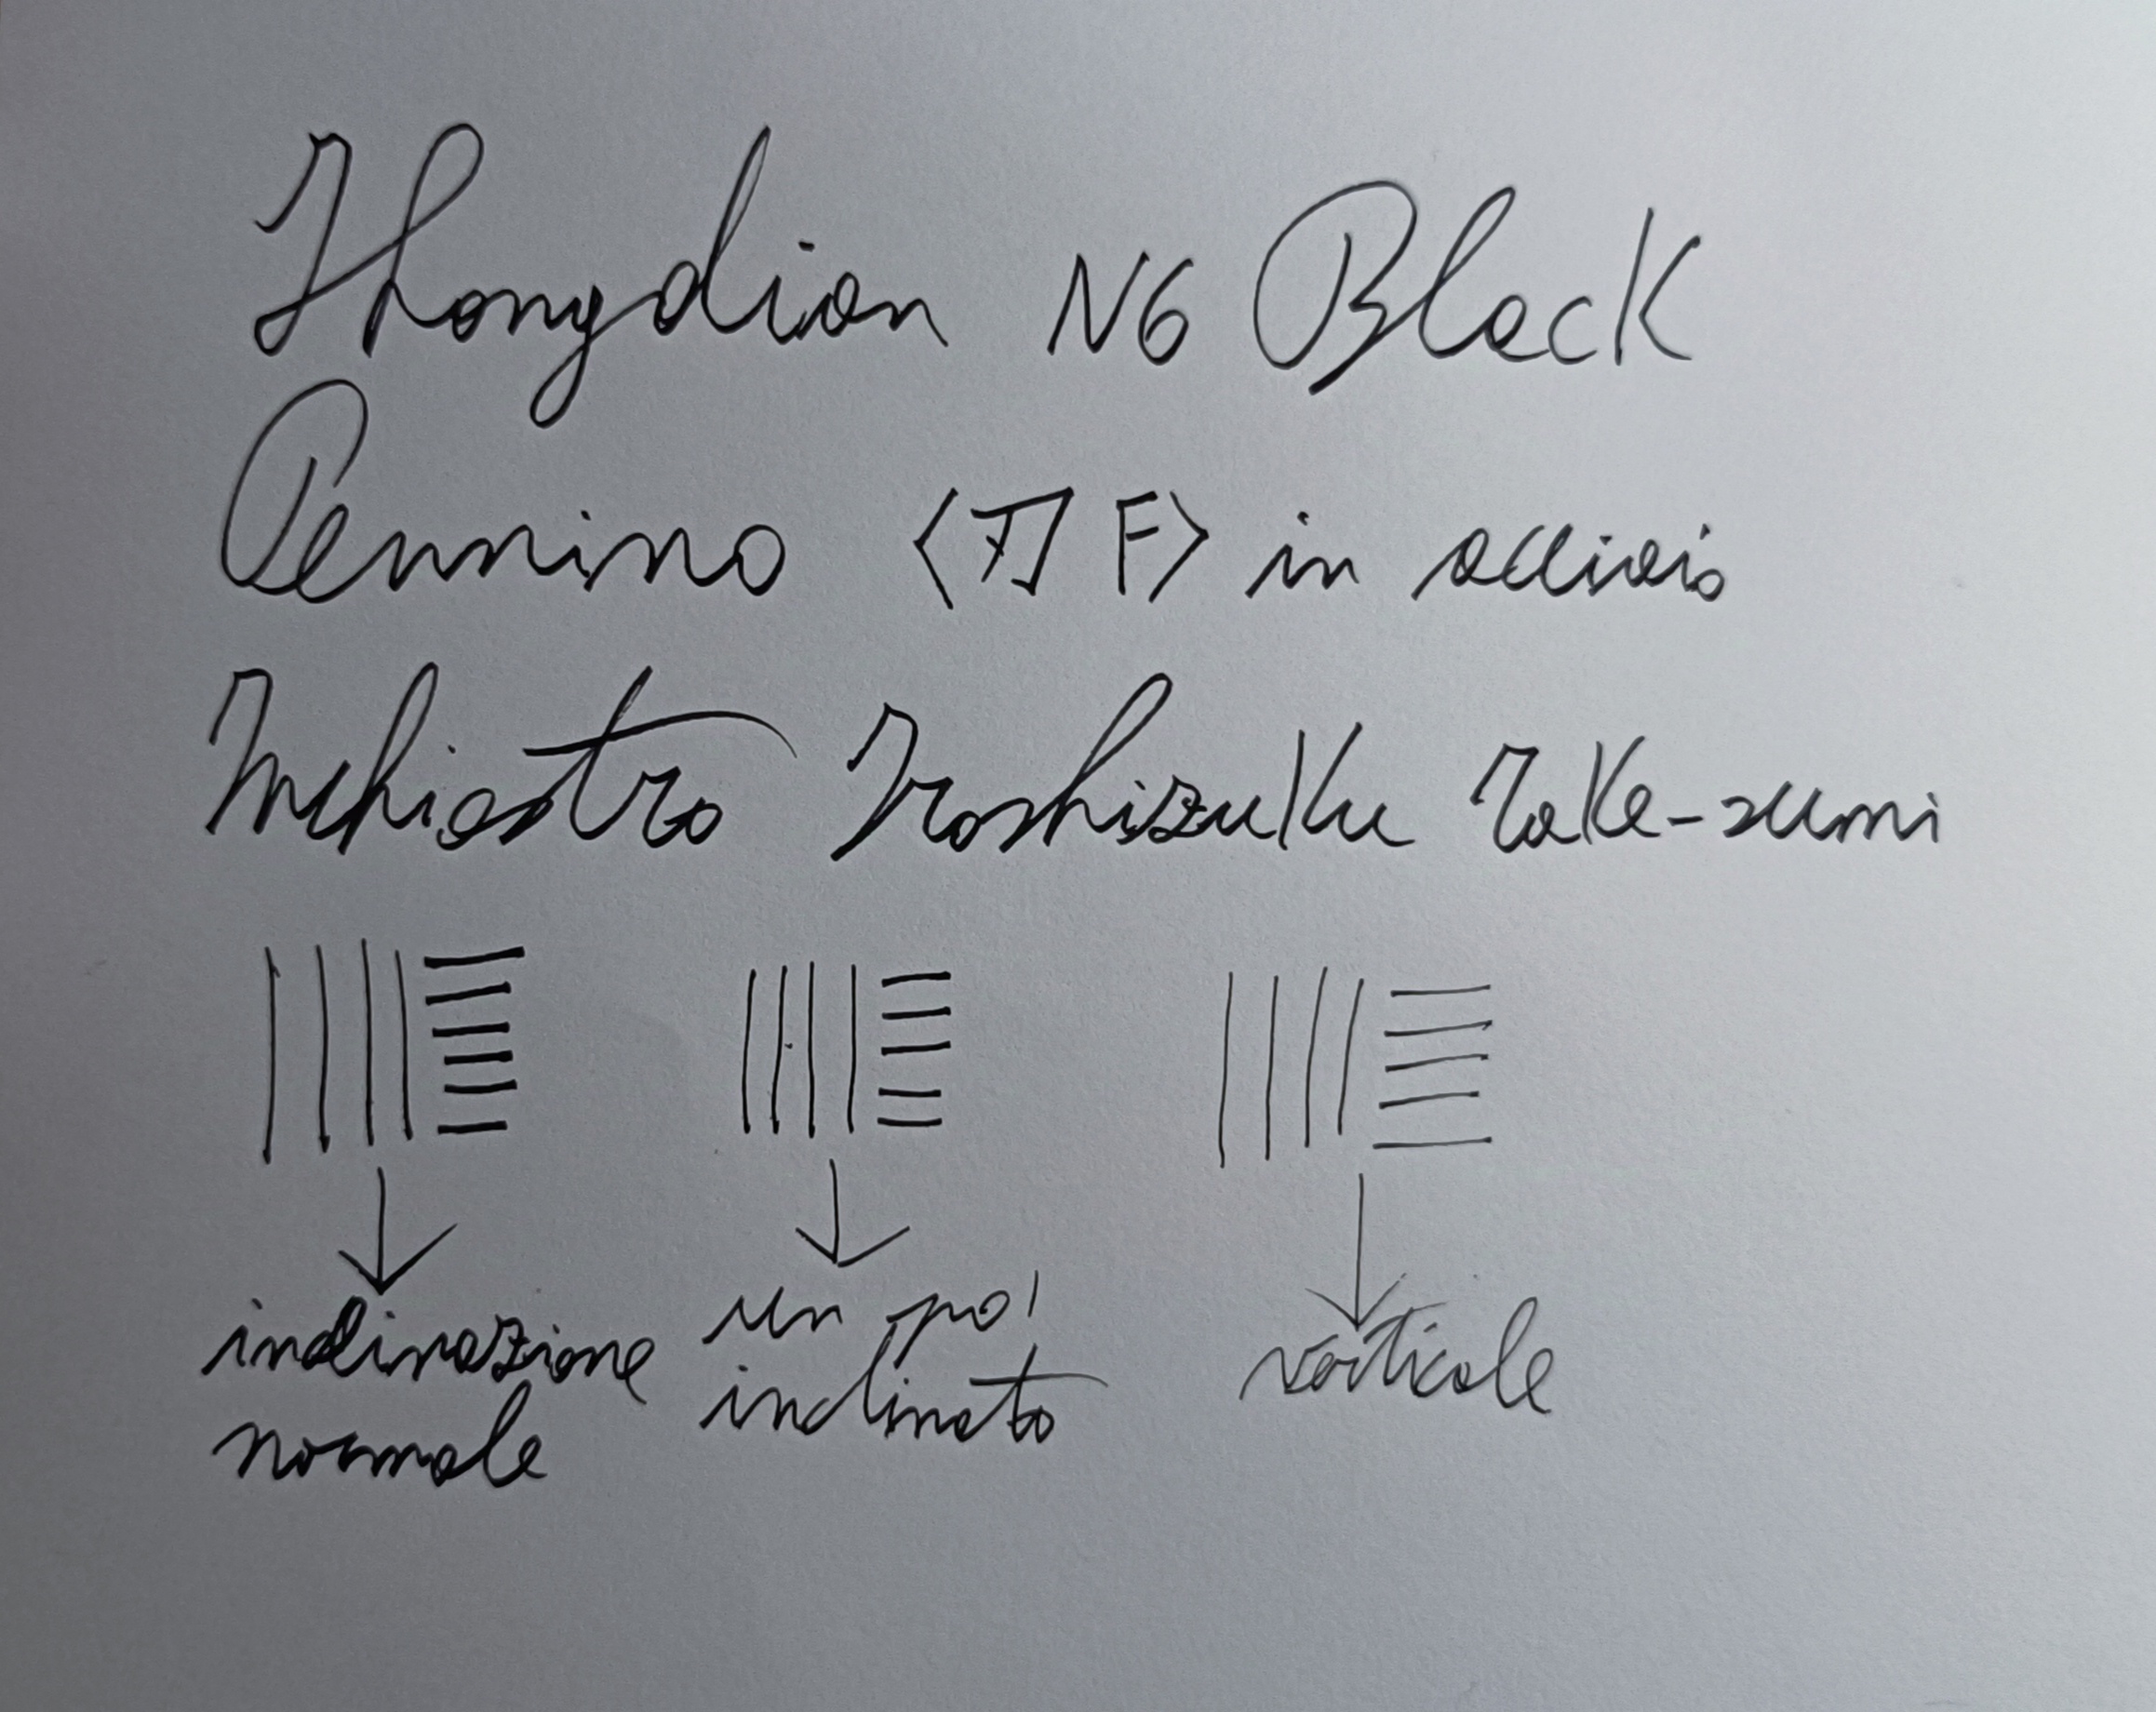 Hongdian N6 Black
Pennino < F> in acciaio
Inchiostro Iroshizuku Take-sumi
inclinazione
normale
un po'
inclinato
verticale